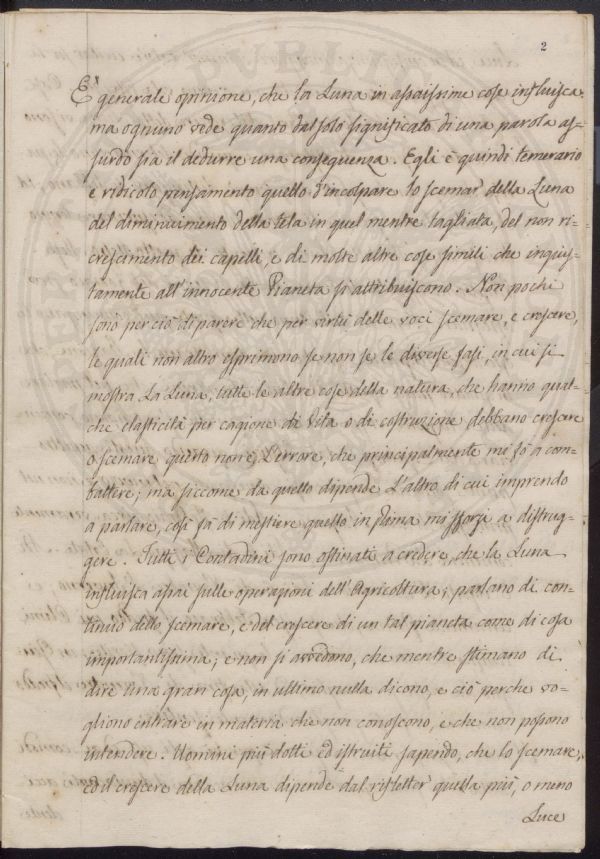 2
E' generale opinione, che la Luna in assaissime cose influisca,
ma ognuno vede quanto dal solo significato di una parola as-
surdo sia il dedurre una conseguenza. Egli è quindi temerario
e ridicolo pensamento quello d'incolpare lo scemar della Luna
del diminuimento della tela in quel mentre tagliata, del non ri-
crescimento dei capelli, e di molte altre cose simili che ingius-
tamente all'innocente Pianeta si attribuiscono. Non pochi
sono perciò di parere che per virtù delle voci scemare, e crescere,
le quali non altro esprimono se non se le diverse fasi, in cui si
mostra La Luna, tutte le altre cose della natura, che hanno qual-
che elasticità per cagione di Vita o di costruzione debbano crescere
o scemare, questo non è L'errore, che principalmente mi fò a com-
battere; ma siccome da quello dipende L'altro di cui imprendo
a parlare, così fà di mestiere quello in prima mi sforzi a distrug-
gere. Tutti i Contadini sono ostinati a credere, che la Luna
influisca assai sulle operazioni dell'Agricoltura; parlano di con-
tinuo dello scemare, e del crescere di un tal pianeta come di cosa
importantissima; e non si avvedono, che mentre stimano di
dire una gran cosa, in ultimo nulla dicono, e ciò perche vo-
gliono entrare in materia che non conoscono, e che non possono
intendere. Uomini più dotti ed istruiti sapendo, che lo scemare,
ed il crescere della Luna dipende dal rifletter quella più, o meno
Luce